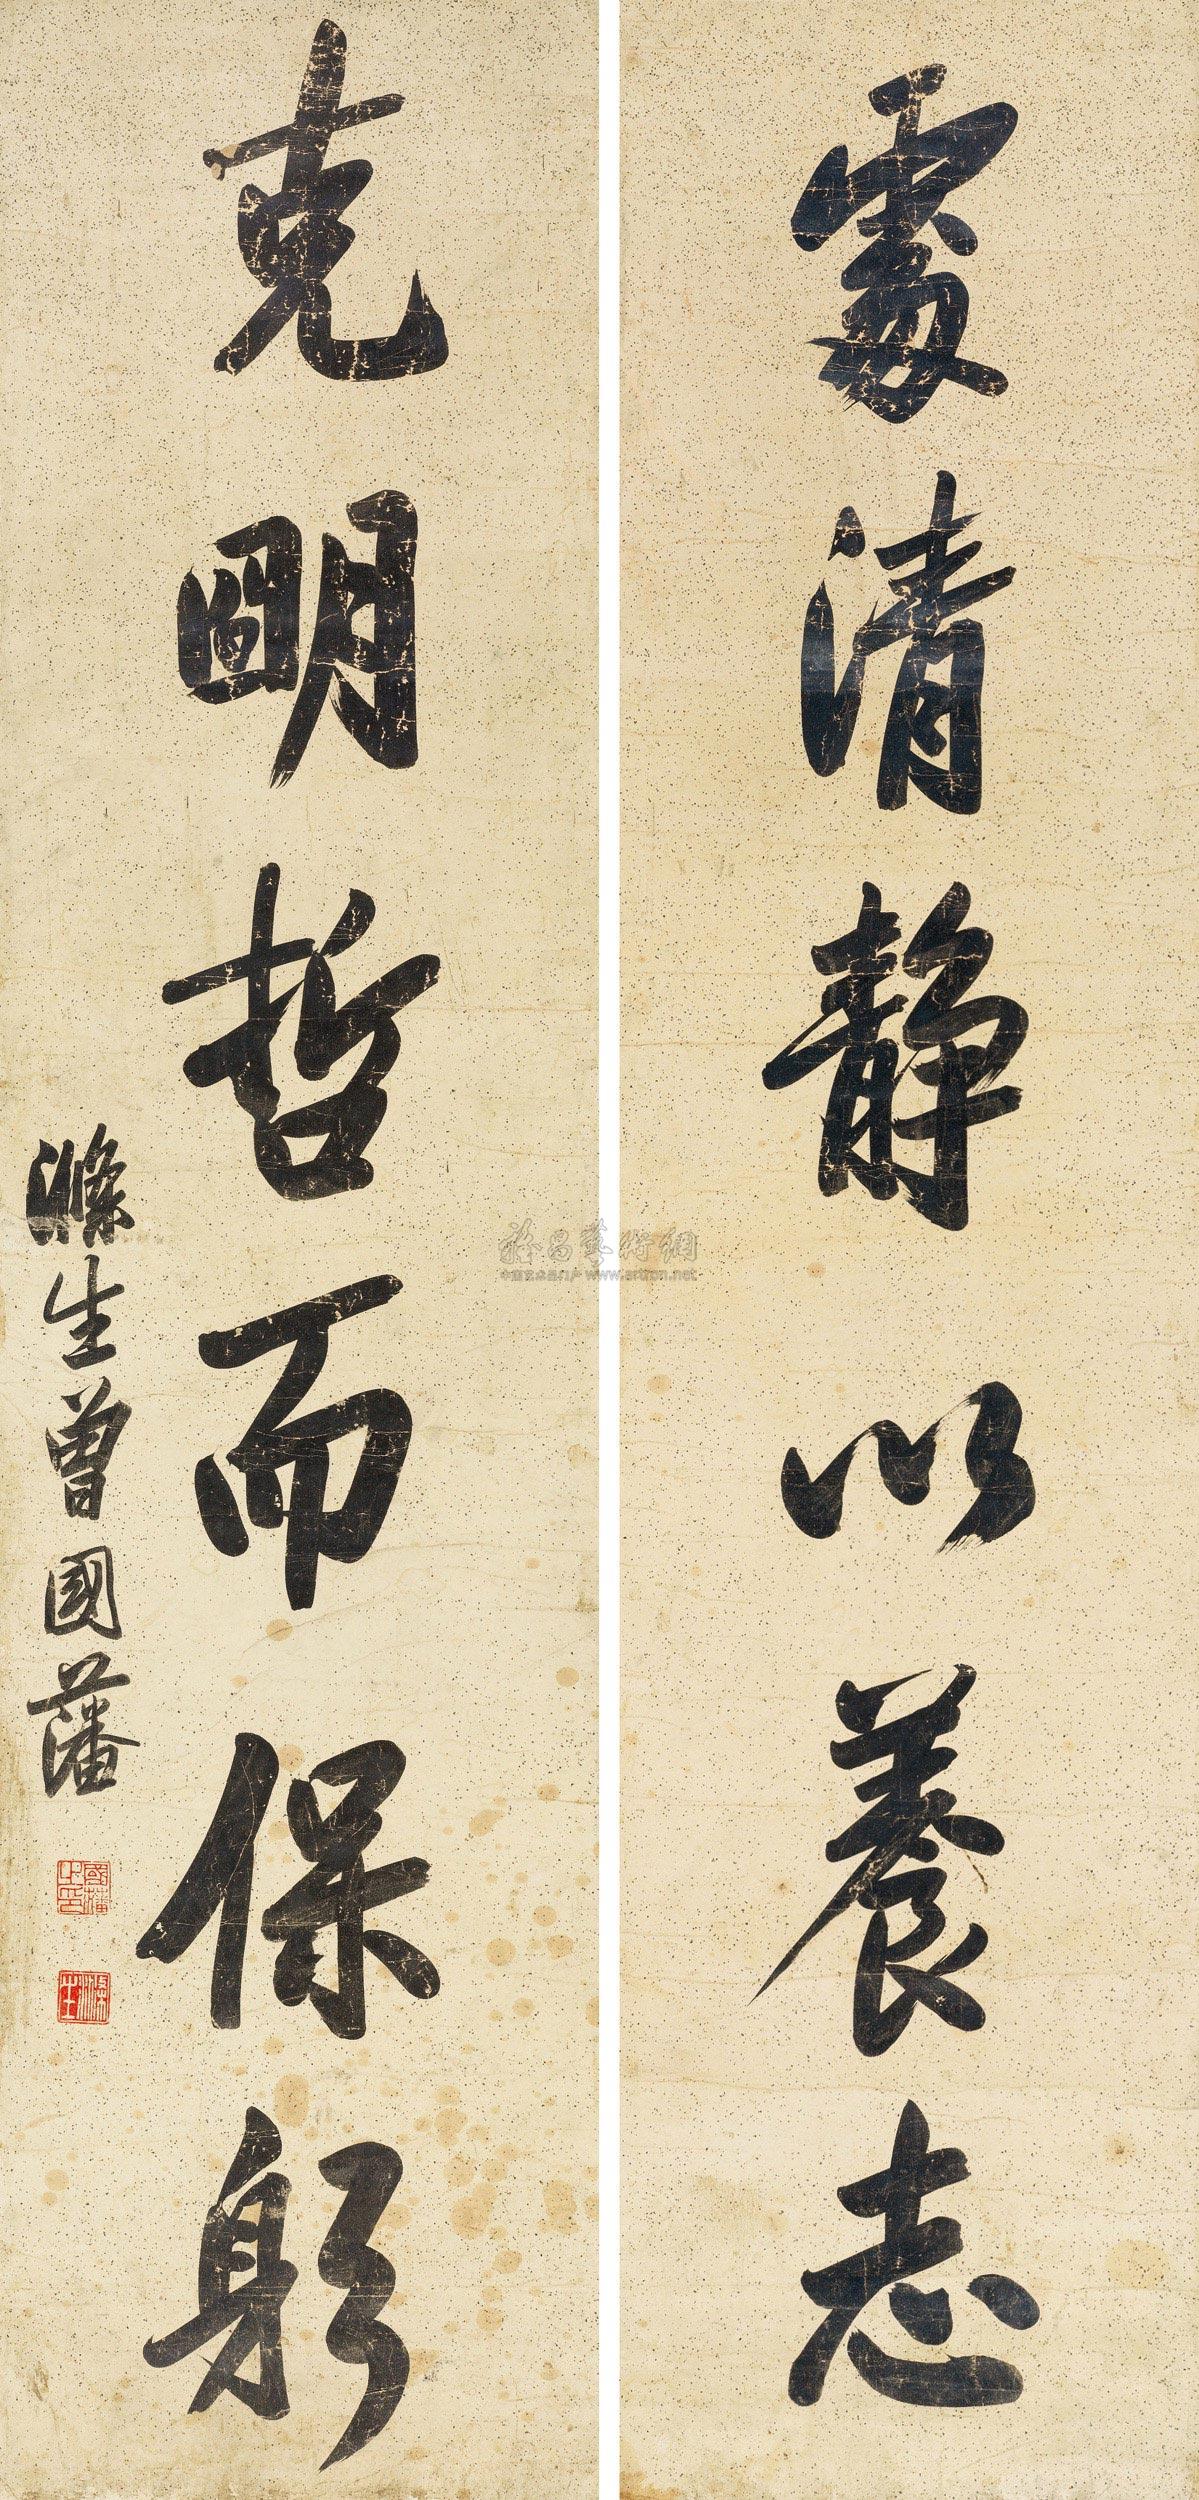 處清靜以養志
克明哲而保躬
滌生曾國藩
國藩之印
滌生
www.artron.net